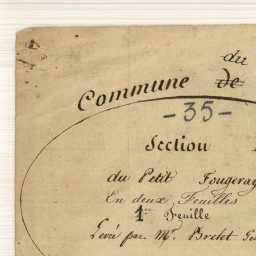 du
Commune de
- 35 -
Section
du Petit Fougeray
En deux Feuilles
1re Feuille
Levée par Mr. Bretet